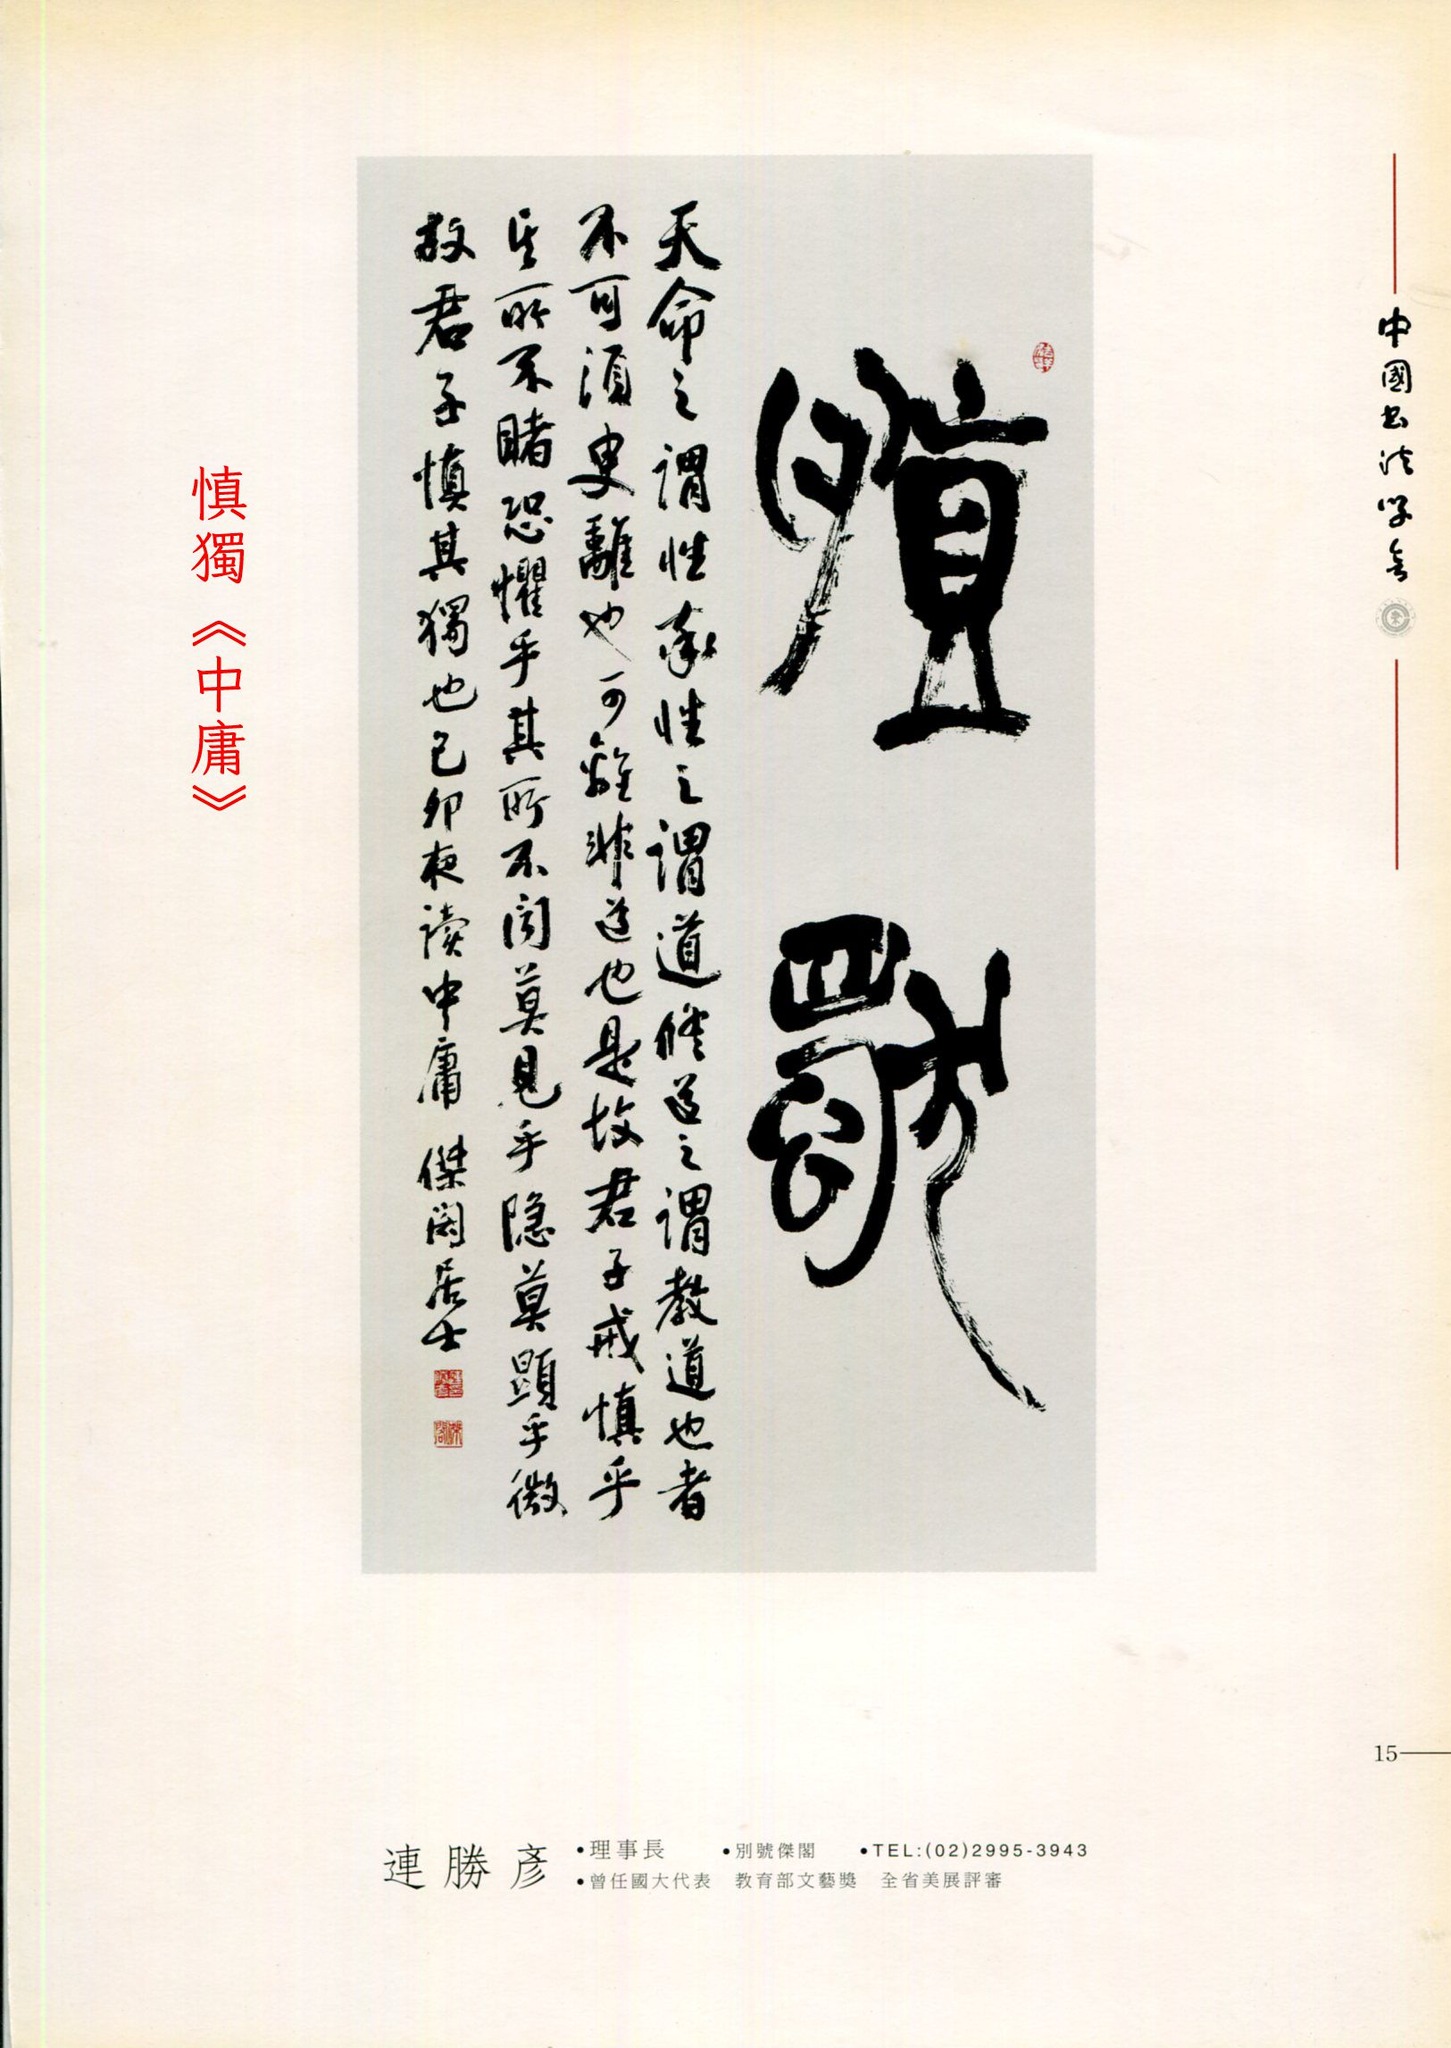 中國書法學會
慎獨
天命之謂性率性之謂道修道之謂教道也者
不可須臾離也可離非道也是故君子戒慎乎
其所不睹恐懼乎其所不聞莫見乎隱莫顯乎微
故君子慎其獨也己卯夜讀中庸 傑閣居士
傑閣
慎獨《中庸》
15
連勝彥
•理事長 •別號傑閣 •TEL:(02)2995-3943
•曾任國大代表 教育部文藝獎 全省美展評審